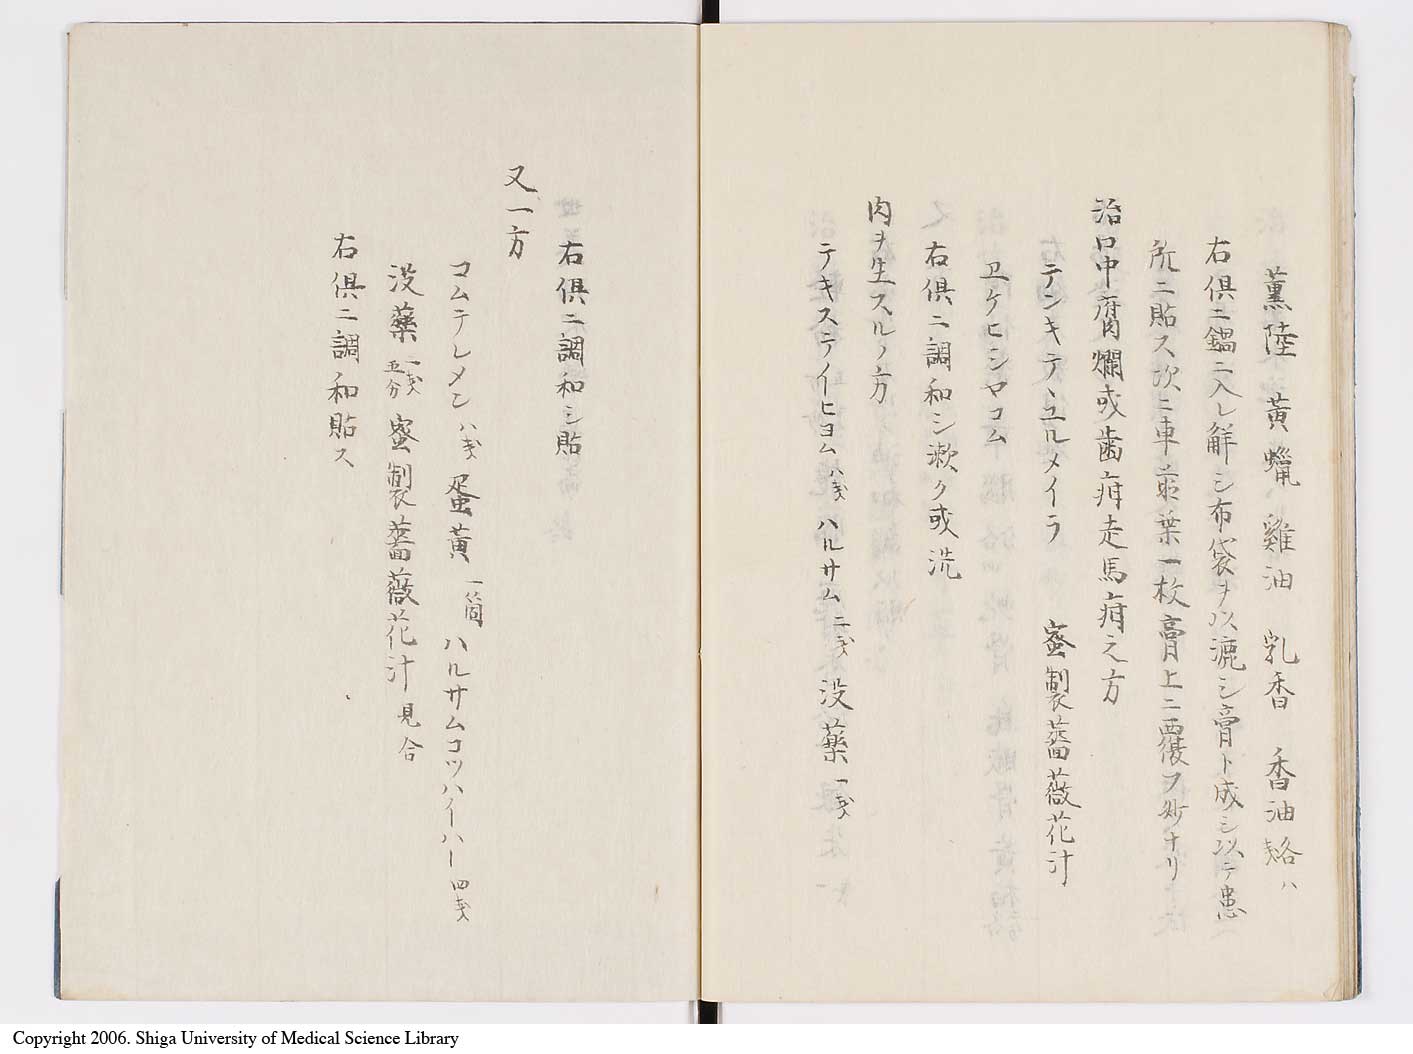 薫陸 黄蠟 雞油 乳香 香油 各八
右倶ニ鍋ニ入レ解シ布袋ヲ以漉シ膏ト成シ以テ患
所ニ貼ス次ニ車前葉一枚膏上ニ覆フ妙ナリ
治口中腐爛或歯疳走馬疳之方
テンキテヽユルメイラ 蜜製薔薇花汁
ヱケヒシマコム
右倶ニ調和シ漱ク或洗
肉ヲ生スルノ方
テキステイーヒヨム 八戔 ハルサム 二戔 没藥 一戔
右倶ニ調和シ貼
又一方
コムテレメン 八戔 蛋黄 一箇 ハルサムコツハイーハー 四戔
没藥 一戔五分 蜜製薔薇花汁 見合
右倶ニ調和貼ス
Copyright 2006. Shiga University of Medical Science Library